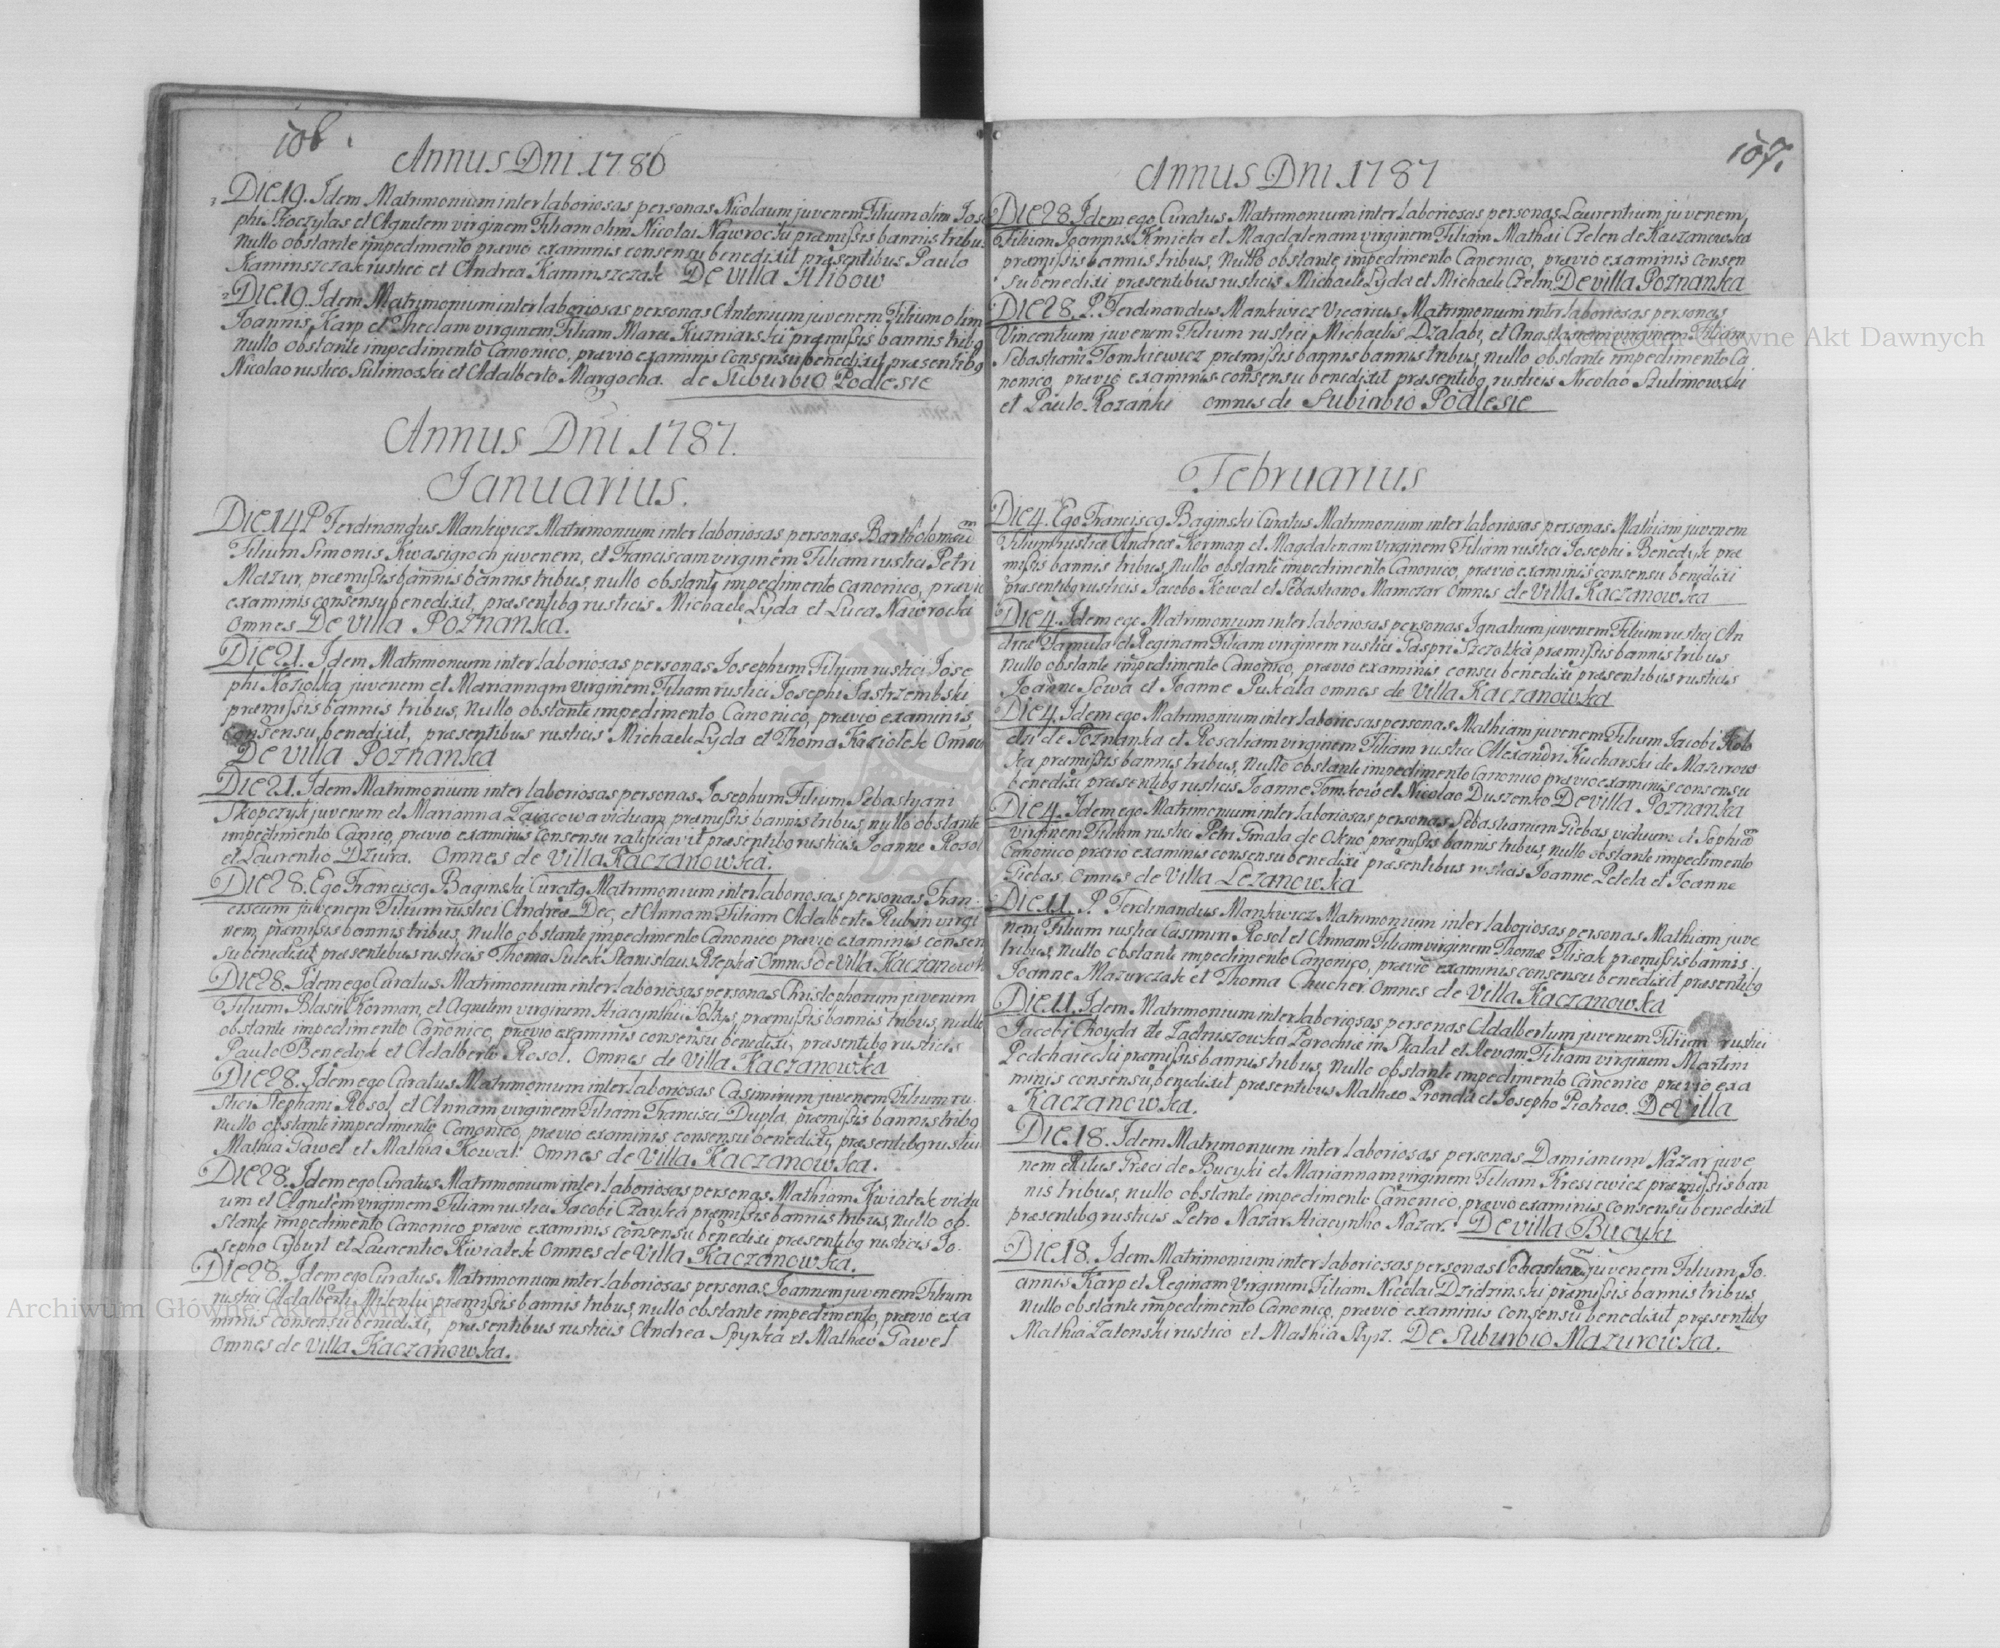 106.
Annus Dni 1786
Die 19. Idem Matrimonium inter laboriosas personas Nicolaum juvenem Filium olim Jose
phi Koczylas et Agnetem virginem Filiam olim Nicolai Nawrocki præmissis bannis tribu
nullo obstante impedimento prævio examinis consensu benedixit præsentibus Paulo
Kaminszczak rustico et Andrea Kaminszczak De Villa Hlibow
Die 19. Idem Matrimonium inter laboriosas personas Antonium juvenem Filium olim
Joannis Karp et Theclam virginem Filiam Marci Kuzniarski præmissis bannis tribq
nullo obstante impedimento Canonico, prævio examinis consensu benedixit præsentibq
Nicolao rustico Sulimoski et Adalberto Margocha. de Suburbio Podlesie
Annus Dni 1787.
Januarius.
Die 14 P Ferdinandus Mankiwicz Matrimonium inter laboriosas personas Bartholomæum
Filium Simonis Kwasigroch juvenem, et Franciscam virginem Filiam rustici Petri
Mazur, præmissis bannis bannis tribus, nullo obstante impedimento canonico, prævio
examinis consensu benedixit, præsentibq rusticis Michaele Lyda et Luca Nawrocki
Omnes De Villa Poznanka.
Die 21. Idem Matrimonium inter laboriosas personas Josephum Filium rustici Jose
phi Koziolka juvenem et Mariannam virginem Filiam rustici Josephi Jastrzembski
præmissis bannis tribus, nullo obstante impedimento Canonico, prævio examinis,
consensu benedixit, præsentibus rusticis Michaele Lyda et Thoma Koziolek Omnes
De villa Poznanka
Die 21. Idem Matrimonium inter laboriosas personas Josephum Filium Sebastyani
Skopczyk juvenem et Marianna Zaiącowa viduam præmissis bannis tribus, nullo obstante
impedimento Canico, prævio examinis consensu ratificavit præsentibq rusticis Joanne Rosol
et Laurentio Dziura. Omnes de Villa Kaczanowka.
Die 28. Ego Franciscq Baginski Curatq Matrimonium inter laboriosas personas Fran-
ciscum juvenem Filium rustici Andreæ Dec, et Annam Filiam Adalberti Rubin virgi
nem, præmissis bannis tribus, nullo obstante impedimento Canonico prævio examinis consen
su benedixit præsentibus rusticis Thoma Sulek Stanislaus Rzepka Omnes de Villa Kaczanowk
Die 28. Idem ego Curatus Matrimonium inter laboriosas personas Christophorum juvenem
Filium Blasii Korman, et Agnetem virginem Hiacynthi Solkys, præmissis bannis tribus, nullo
obstante impedimento Canonico, prævio examinis consensu benedixi, præsentibq rusticis
Paulo Benedyk et Adalberto Rosol. Omnes de Villa Kaczanowka
Die 28. Idem ego Curatus Matrimonium inter laboriosas Casimirum juvenem Filium ru-
stici Stephani Rosol, et Annam virginem Filiam Francisci Dupla, præmissis bannis tribq
nullo obstante impedimento Canonico, prævio examinis consensu benedixi, præsentibq rustici
Mathia Pawel et Mathia Kowal. Omnes de Villa Kaczanowka.
Die 28. Idem ego Curatus Matrimonium inter laboriosas personas Mathiam Kwiatek vidu
um et Agnetem virginem Filiam rustici Jacobi Czayka præmissis bannis tribus, nullo ob-
stante impedimento Canonico prævio examinis consensu benedixi præsentibq rusticis Jo-
sepho Cyburt et Laurentio Kwiatek Omnes de Villa Kaczanowka.
Die 28. Idem ego Curatus Matrimonium inter laboriosas personas Joannem juvenem Filium
rustici Adalberti præmissis bannis tribus, nullo obstante impedimento, prævio exa
minis consensu benedixi, præsentibus rusticis Andrea Spyrka et Mathæo Pawel
Omnes de Villa Kaczanowka.
107.
Annus Dni 1787
Die 28. Idem ego Curatus Matrimonium inter laboriosas personas Laurentium juvenem,
Filium Joannis Kmieta et Magdalenam virginem Filiam Mathæi Czelen de Kaczanowka
præmissis bannis tribus, nullo obstante impedimento Canonico, prævio examinis consen
su benedixi præsentibus rusticis Michaele Lyda et Michaele Czelin De villa Poznanka
Die 28. P. Ferdinandus Mankiewicz Vicarius Matrimonium inter laboriosas personas
Vincentium juvenem Filium rustici Michaelis Dzalabi, et Anastasiam virginem Filiam
Sebastiani Tomkiewicz præmissis bannis bannis tribus, nullo obstante impedimento Ca
nonico prævio examinis consensu benedixit præsentibq rusticis Nicolao Szulimowski
et Paulo Rozanki omnes de Suburbio Podlesie
Februarius
Die 4. Ego Franciscq Baginski Curatus Matrimonium inter laboriosas personas Mathiam juvenem
Filium rustici Andreæ Korman et Magdalenam virginem Filiam rustici Josephi Benedyk præ
missis bannis tribus, nullo obstante impedimento Canonico, prævio examinis consensu benedixi
præsentibq rusticis Jacobo Kowal et Sebastiano Mamczar Omnes de Villa Kaczanowka
Die 4. Idem ego Matrimonium inter laboriosas personas Ignatium juvenem Filium rustici An
dreæ Famula et Reginam Filiam virginem rustici Paspri Szczotka præmissis bannis tribus
nullo obstante impedimento Canonico, prævio examinis consu benedixi præsentibus rusticis
Joanne Sowa et Joanne Puskala omnes de Villa Kaczanowka
Die 4. Idem ego Matrimonium inter laboriosas personas Mathiam juvenem Filium Jacobi
de Poznanka et Rosaliam virginem Filiam rustici Allexandri Kucharski de Mazurow
ka præmissis bannis tribus, nullo obstante impedimento Canonico prævio examinis consensu
benedixi præsentibq rusticis Joanne Tomkow et Nicolao Duszenko De villa Poznanka
Die 4. Idem ego Matrimonium inter laboriosas personas Sebastianum Giebas viduum et Sophiam
virginem Filiam rustici Petri Gmala de Okno, præmissis bannis tribus, nullo obstante impedimento
Canonico prævio examinis consensu benedixi præsentibus rusticis Joanne Pelela et Joanne
Giebas. Omnes de Villa Lezanowka
Die 11. P. Ferdinandus Mankiwicz Matrimonium inter laboriosas personas Mathiam juve
nem Filium rustici Casimiri Rosol et Annam Filiam virginem Thomæ Flisak præmissis bannis
tribus, nullo obstante impedimento Canonico, prævio examinis consensu benedixit præsentibq
Joanne Mazurczak et Thoma Chucher Omnes de Villa Kaczanowka
Die 11. Idem Matrimonium inter laboriosas personas Adalbertum juvenem Filium rustici
Jacobi Choyda de Parochiæ in Skalat et Hevam Filiam virginem Martini
Podchaiecki præmissis bannis tribus, nullo obstante impedimento Canonico prævio exa
minis consensu, benedixit præsentibus Mathæo Pronda et Josepho Piotrow. De Villa
Kaczanowka.
Die 18. Idem Matrimonium inter laboriosas personas Damianum Nazar juve
nem Ritus Græci de Bucyki et Mariannam virginem Filiam Kresiewicz præmissis ban
nis tribus, nullo obstante impedimento Canonico, prævio examinis consensu benedixit
præsentibq rusticis Petro Nazar Hiacyntho Nazar. De Villa Bucyki
Die 18. Idem Matrimonium inter laboriosas personas Sebastianum juvenem Filium Jo-
annis Karp et Reginam Virginem Filiam Nicolai Dzidzinski præmissis bannis tribus,
nullo obstante impedimento Canonico, prævio examinis consensu benedixit præsentibq
Mathia Zatonski rustico et Mathia Styrz. De Suburbio Mazurowka.
Archiwum Główne Akt Dawnych
Archiwum Główne Akt Dawnych